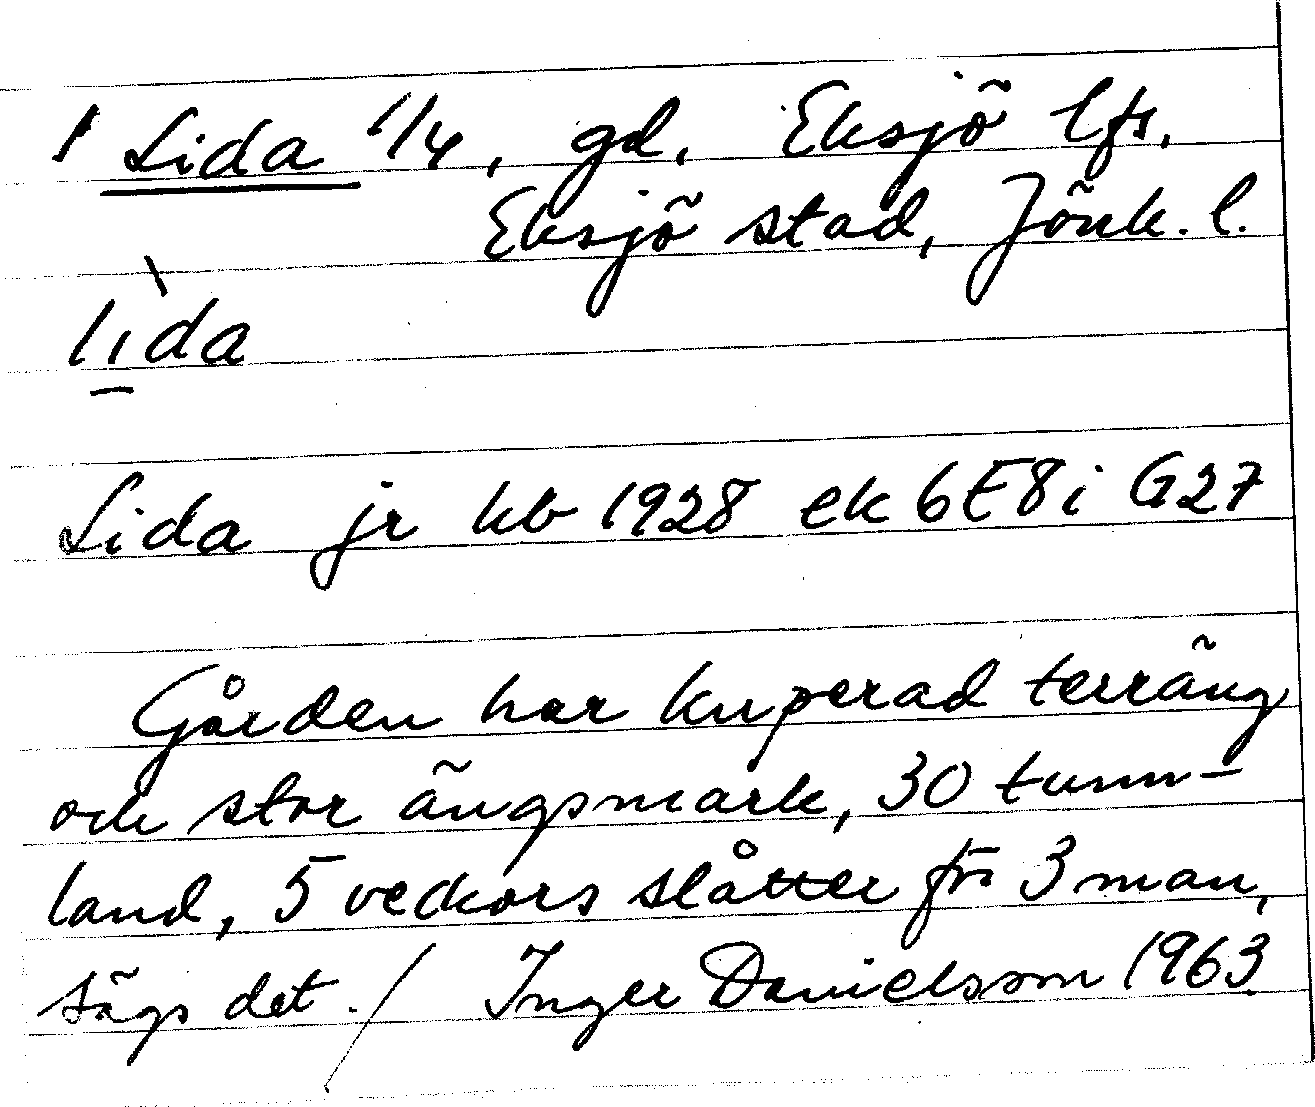 1 Lida 1/4, gd, Eksjö lfs,
Eksjö stad, Jönk. l.
lìda
Lida jr kb 1928 ek 6E8i G27
Gården har kuperad terräng
och stor ängsmark, 30 tunn-
land, 5 veckors slåtter för 3 man,
sägs det. / Inger Danielsson 1963